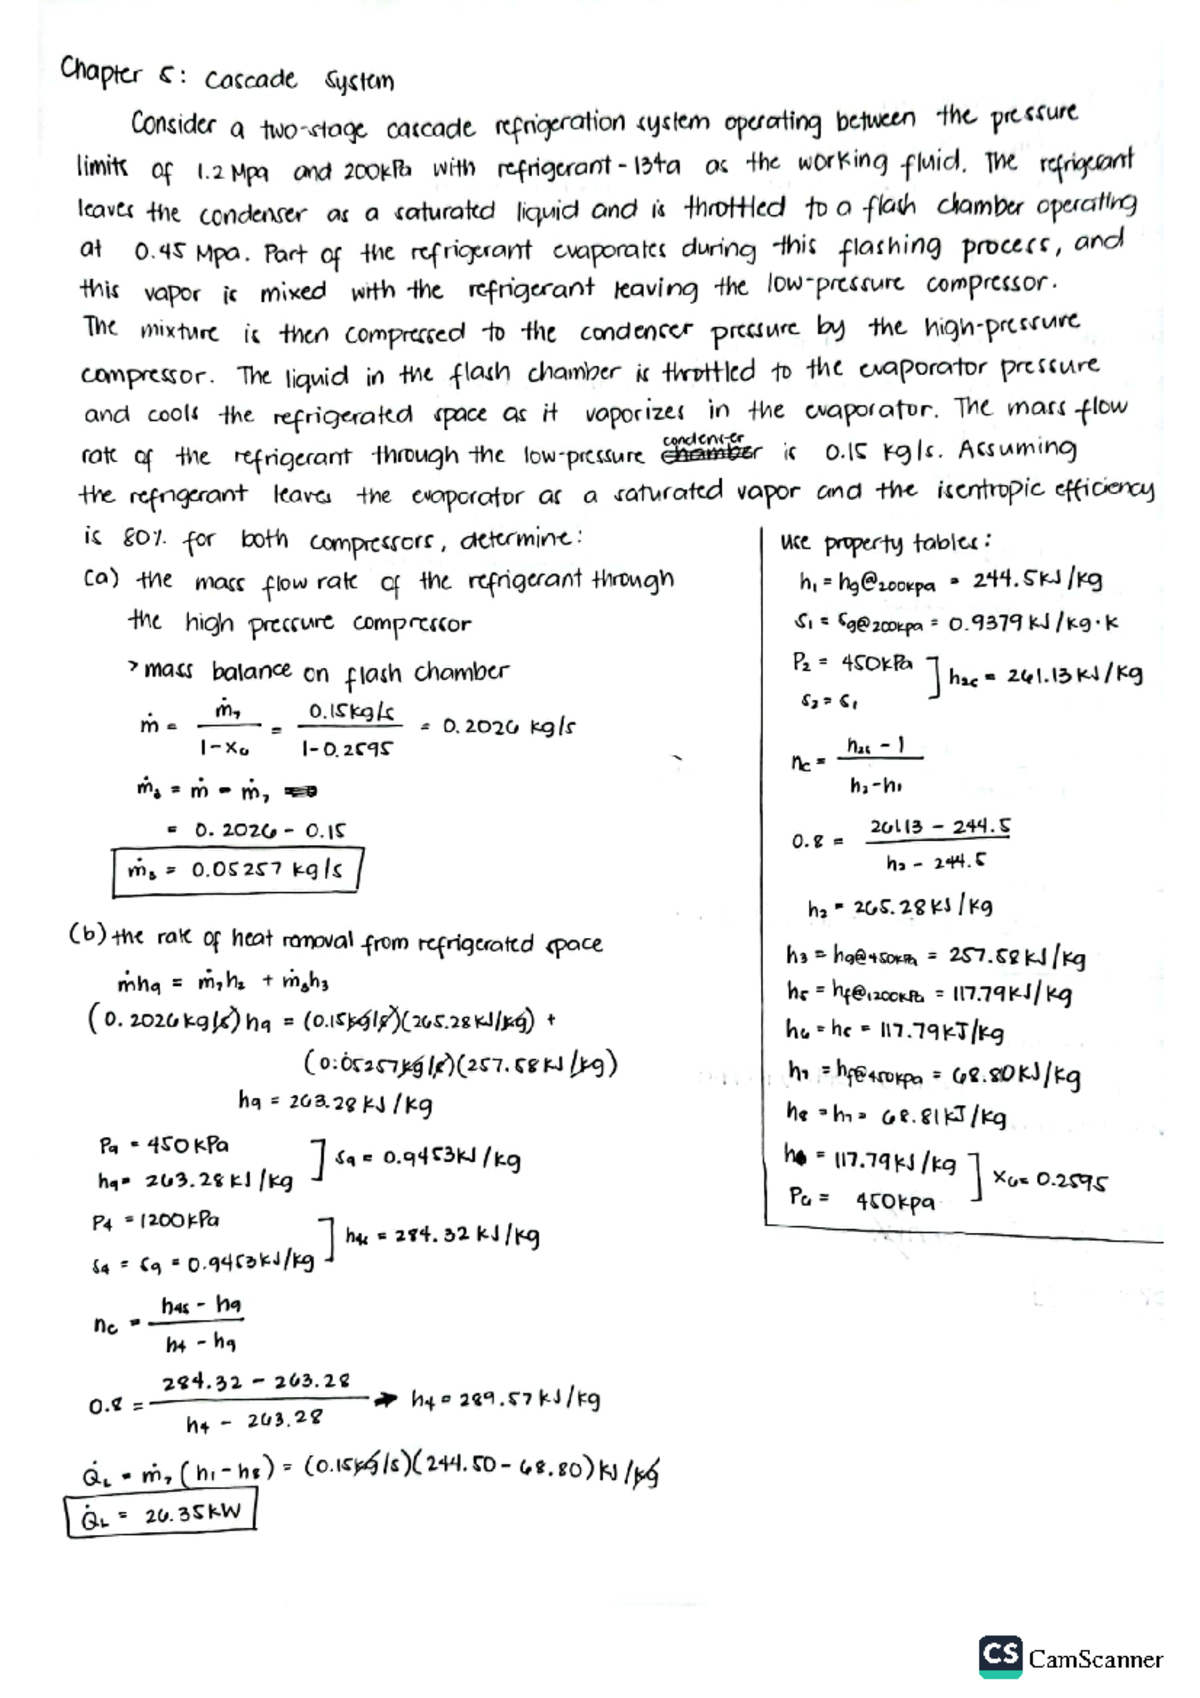 Chapter 5: Cascade System
Consider a two-stage cascade refrigeration system operating between the pressure
limits of 1.2 Mpa and 200kPa with refrigerant-134a as the working fluid. The refrigerant
leaves the condenser as a saturated liquid and is throttled to a flash chamber operating
at 0.45 Mpa. Part of the refrigerant evaporates during this flashing process, and
this vapor is mixed with the refrigerant leaving the low-pressure compressor.
The mixture is then compressed to the condenser pressure by the high-pressure
compressor. The liquid in the flash chamber is throttled to the evaporator pressure
and cools the refrigerated space as it vaporizes in the evaporator. The mass flow
rate of the refrigerant through the low-pressure condenser is 0.15 kg/s. Assuming
the refrigerant leaves the evaporator as a saturated vapor and the isentropic efficiency
is 80% for both compressors, determine:
(a) the mass flow rate of the refrigerant through
the high pressure compressor
> mass balance on flash chamber
ṁ = ṁ7 / 1-x6 = 0.15kg/s / 1-0.2595 = 0.2026 kg/s
ṁ3 = ṁ - ṁ7
= 0.2026 - 0.15
ṁ3 = 0.05257 kg/s
(b) the rate of heat removal from refrigerated space
ṁh9 = ṁ7h2 + ṁ3h3
(0.2026kg/s)h9 = (0.15kg/s)(265.28KJ/kg) +
(0.05257kg/s)(257.58KJ/kg)
h9 = 263.28 KJ/kg
P9 = 450kPa
h9= 263.28 KJ/kg ] s9 = 0.9453KJ/kg
P4 = 1200kPa
s4 = s9 = 0.9453KJ/kg ] h4s = 284.32 KJ/kg
nc = h4s - h9 / h4 - h9
0.8 = 284.32 - 263.28 / h4 - 263.28 → h4 = 289.57 KJ/kg
Q̇L = ṁ7 (h1-h8) = (0.15kg/s)(244.50-68.80)KJ/kg
Q̇L = 26.35KW
use property tables:
h1 = hg@200kpa = 244.5KJ/kg
s1 = sg@200kpa = 0.9379 KJ/kg·K
P2 = 450kPa
s2 = s1 ] h2s = 261.13 KJ/kg
nc = h2s - 1 / h2-h1
0.8 = 261.13 - 244.5 / h2 - 244.5
h2 = 265.28 KJ/kg
h3 = hg@450kPa = 257.58 KJ/kg
h5 = hf@1200kPa = 117.79KJ/kg
h6 = h5 = 117.79KJ/kg
h7 = hf@450kpa = 68.80KJ/kg
h8 = h7 = 68.81KJ/kg
h6 = 117.79KJ/kg
P6 = 450kpa ] x6= 0.2595
CS CamScanner